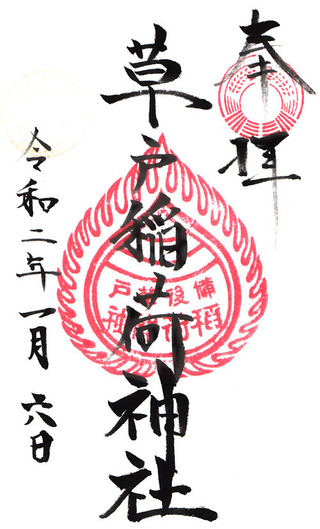 奉拝
草戸稲荷神社
備後草戸
稲荷神社
令和二年一月六日